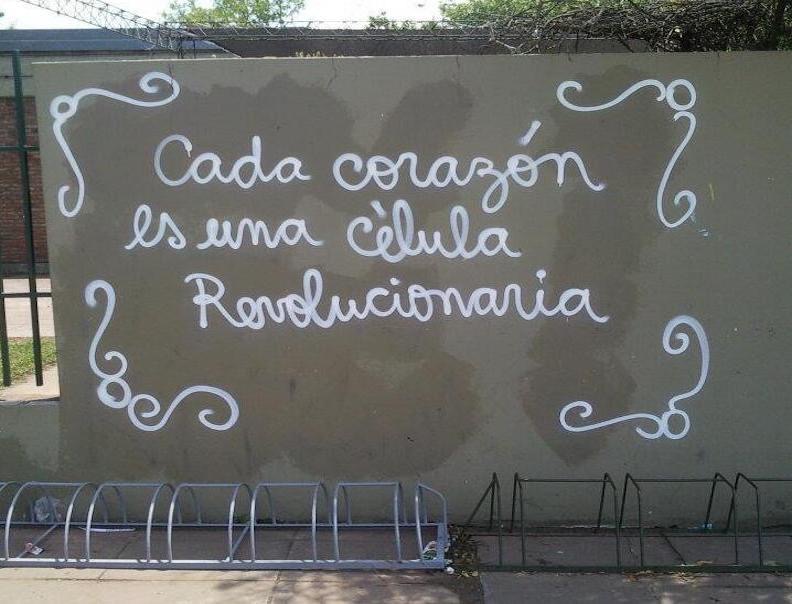 Cada corazón
es una célula
Revolucionaria